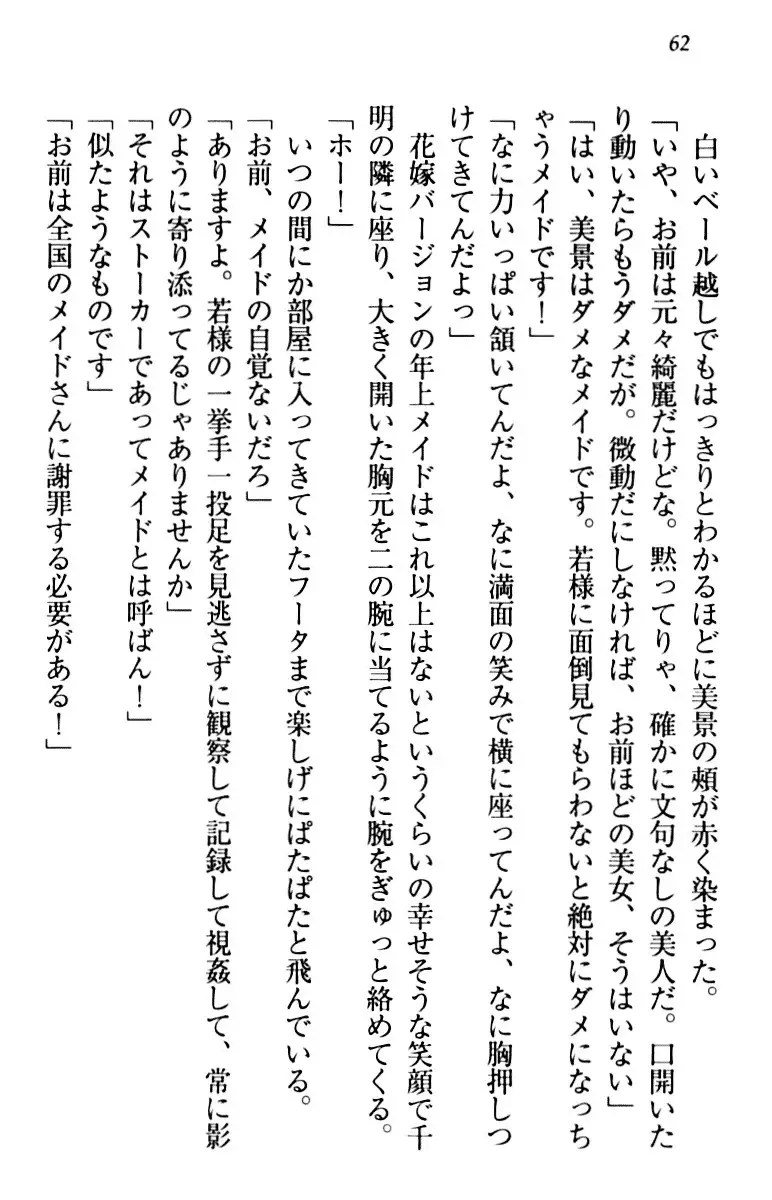 62
白いベール越しでもはっきりとわかるほどに美景の頬が赤く染まった。
「いや、お前は元々綺麗だけどな。黙ってりゃ、確かに文句なしの美人だ。口開いた
り動いたらもうダメだが。微動だにしなければ、お前ほどの美女、そうはいない」
「はい、美景はダメなメイドです。若様に面倒見てもらわないと絶対にダメになっち
ゃうメイドです！」
「なに力いっぱい頷いてんだよ、なに満面の笑みで横に座ってんだよ、なに胸押しつ
けてきてんだよっ」
花嫁バージョンの年上メイドはこれ以上はないというくらいの幸せそうな笑顔で千
明の隣に座り、大きく開いた胸元を二の腕に当てるように腕をぎゅっと絡めてくる。
「ホー！」
いつの間にか部屋に入ってきていたフータまで楽しげにぱたぱたと飛んでいる。
「お前、メイドの自覚ないだろ」
「ありますよ。若様の一挙手一投足を見逃さずに観察して記録して視姦して、常に影
のように寄り添ってるじゃありませんか」
「それはストーカーであってメイドとは呼ばん！」
「似たようなものです」
「お前は全国のメイドさんに謝罪する必要がある！」